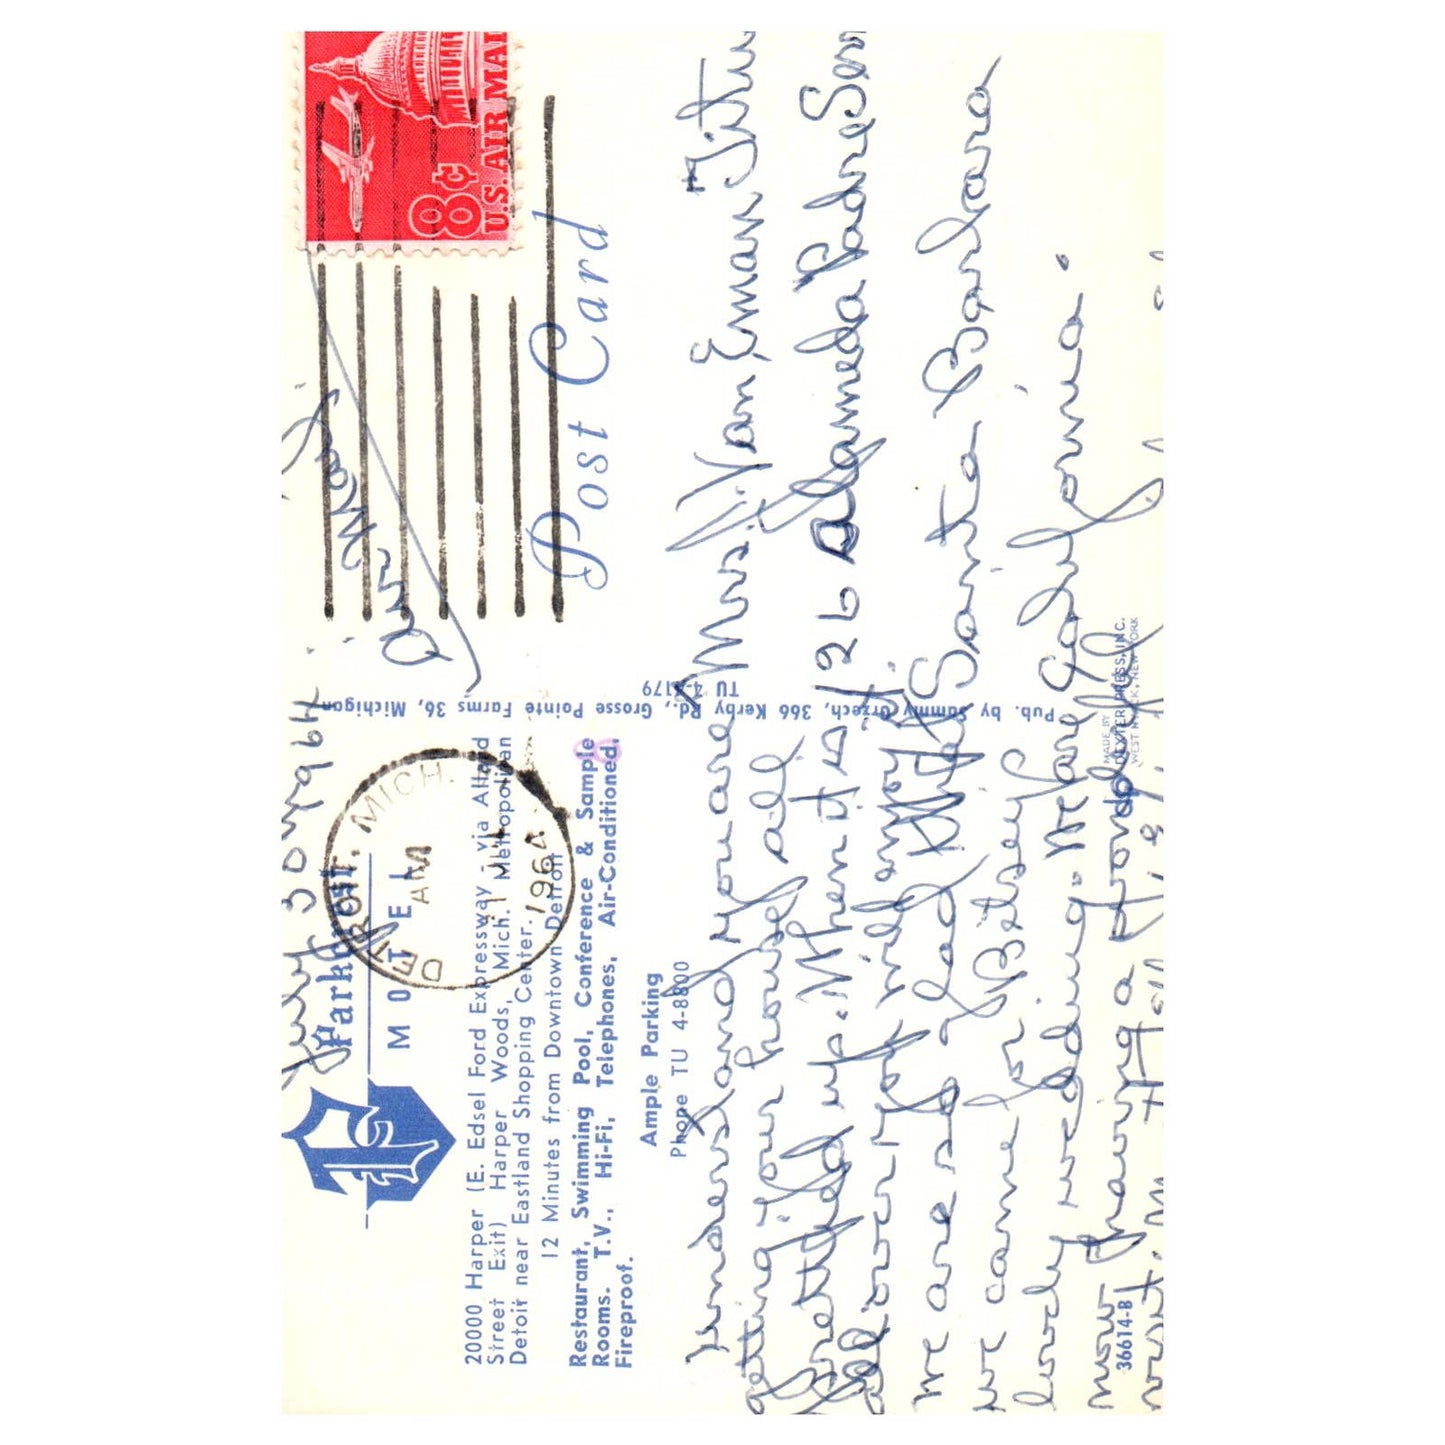 July 30, 1964
Parkcrest
MOTEL
20000 Harper (E. Edsel Ford Expressway - via Allard
Street Exit) Harper Woods, Mich. Metropolitan
Detoit near Eastland Shopping Center.
12 Minutes from Downtown Detroit
Restaurant, Swimming Pool, Conference & Sample
Rooms. T.V., Hi-Fi, Telephones, Air-Conditioned.
Fireproof.
Ample Parking
Phone TU 4-8800
understand you are
getting your house all
prettified up. When it is
all over you will enjoy it.
We are so glad
we came for Betsey's
lovely wedding. We are
now having a
36614-B
Pub. by Sammy Orzech, 366 Kerby Rd., Grosse Pointe Farms 36, Michigan
TU 4-4179
MADE BY
DEXTER PRESS, INC.
WEST NYACK, NEW YORK
DETROIT, MICH.
AM
31 JUL
1964
U.S. AIR MAIL
8¢
Ann Mary
Post Card
Mrs. Van Eman Titus
126 Alameda Padre Serra
Santa Barbara
California.